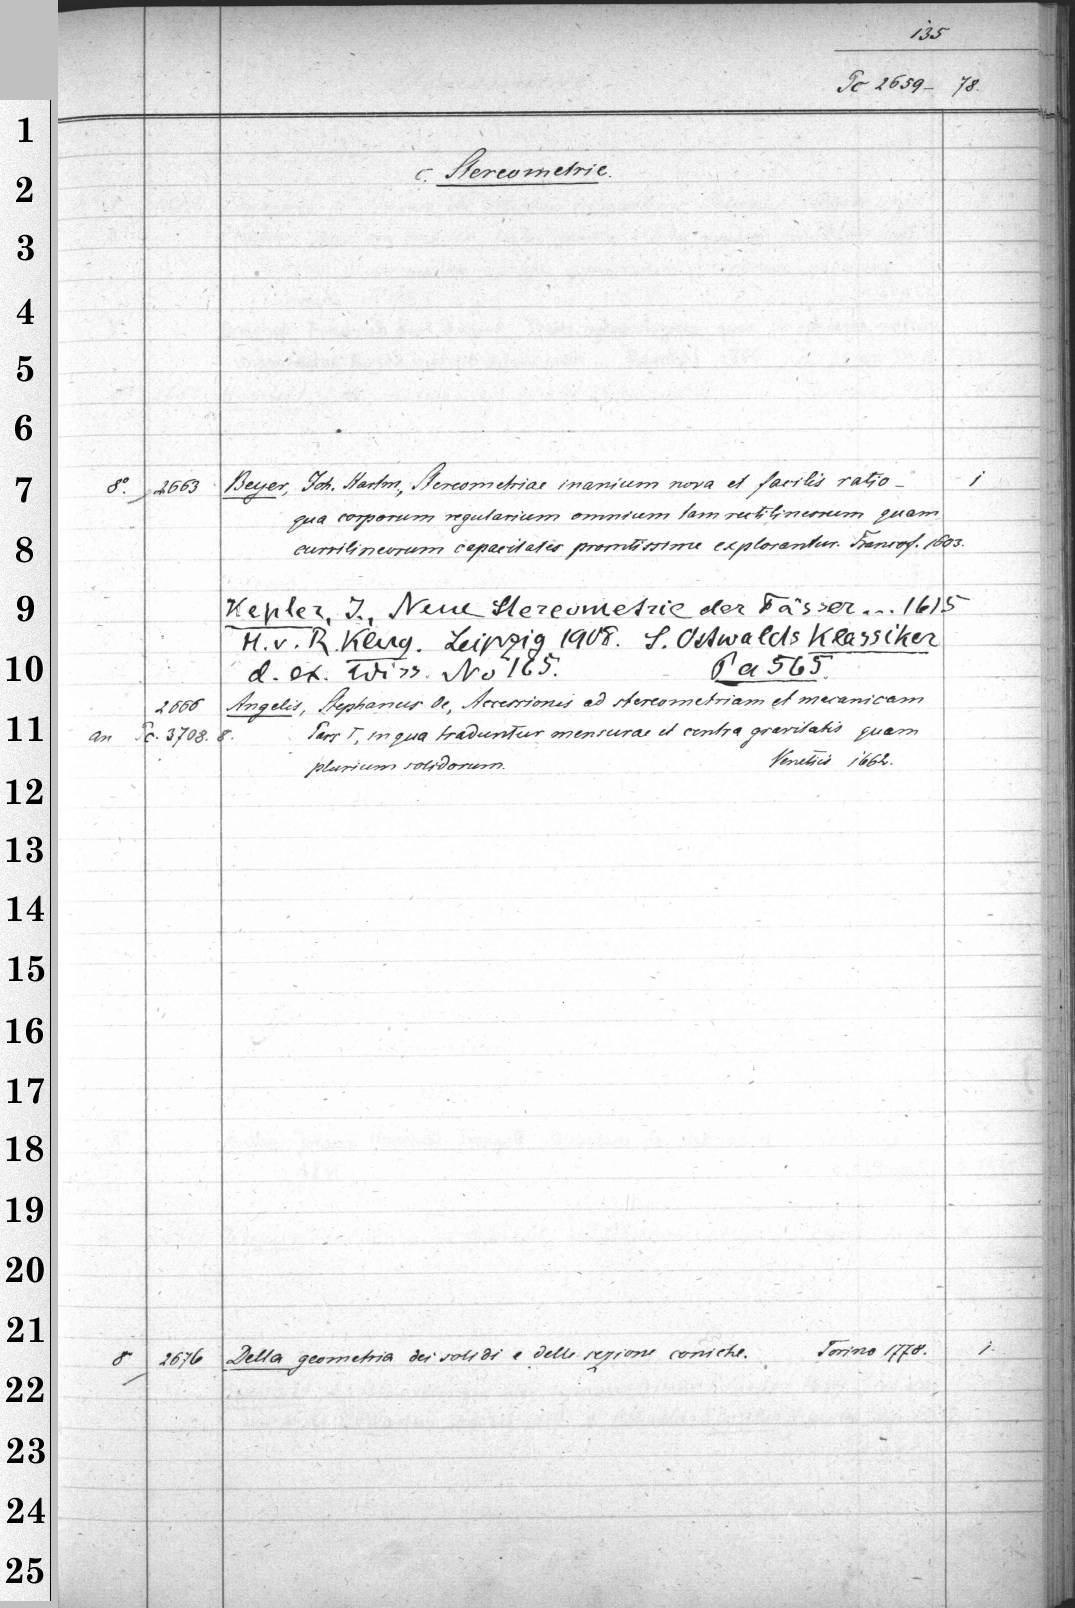 135
Pc 2659-78.
1
c. Stereometrie.
2
3
4
5
6
7
8°. 2663 Beyer, Joh. Hartm., Stereometriae inanium nova et facilis ratio - 1
qua corporum regularium omnium tam rectilineorum quam
8
curvilineorum capacitates promtissime explorantur. Francof. 1603.
9
Kepler, J., Neue Stereometrie der Fässer ... 1615
H. v. R. Klug. Leipzig 1908. S. Ostwalds Klassiker
10
d. ex. Wiss. No 165. Pa 565.
2666 Angelis, Stephanus de, Accessionis ad stereometriam et mecanicam
11
an Pc. 3708. 8. Pars I, in qua traduntur mensurae et centra gravitatis quam
plurium solidorum. Venetiis 1662.
12
13
14
15
16
17
18
19
20
21
8° 2676 Della geometria dei solidi e delle sezione coniche. Torino 1778. 1.
22
23
24
25